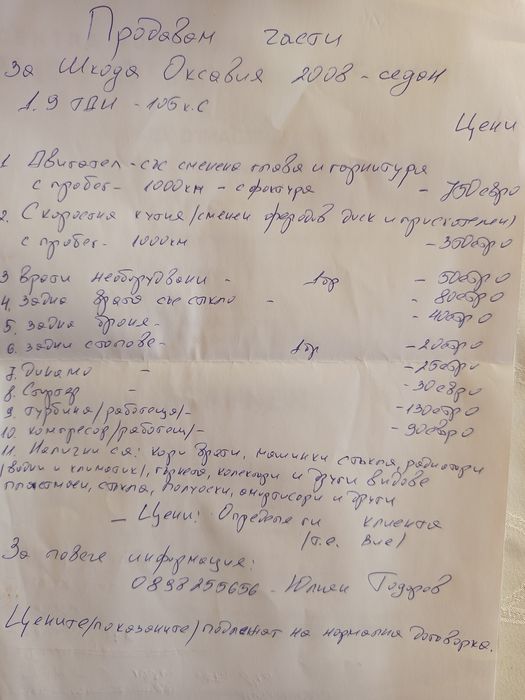 Продавам части
За Шкода Октавия 2008 - седан
1.9 ТДИ - 105 к.с
Цени
1. Двигател - със сменена глава и гарнитура
с пробег - 1000 км - с фактура - 750 евро
2. Скоростна кутия /сменен феродов диск и притискателен/
с пробег - 1000 км - 350 евро
3 врати необорудвани - 1бр - 50 евро
4. Задна врата със стъкло - - 80 евро
5. задна броня - - 40 евро
6. задни стопове - 1бр - 20 евро
7. Динамо - - 25 евро
8. Стартер - - 30 евро
9. турбина /работеща/ - - 130 евро
10. компресор /работещ/ - - 90 евро
11. Налични са: кори врати, машинки стъкла, радиатори
/водни и климатик/, гърнета, колектори и други видове
пластмаси, стъкла, полуоски, амортисьори и други
- Цени: Определя ги клиента
/т.е. Вие/
За повече информация:
0893255656 - Юлиян Тодоров
Цените /показаните/ подлежат на нормална договорка.